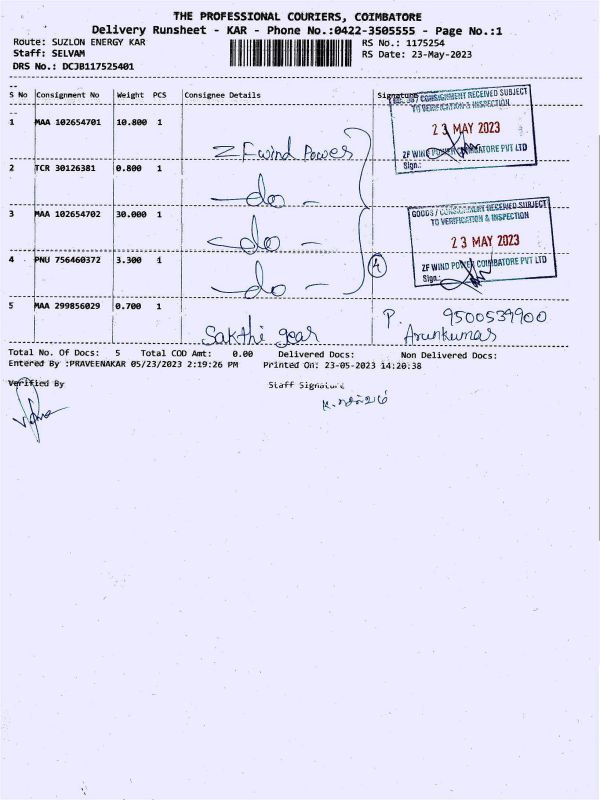 THE PROFESSIONAL COURIERS, COIMBATORE
Delivery Runsheet - KAR - Phone No.:0422-3505555 - Page No.:1
Route: SUZLON ENERGY KAR
RS No.: 1175254
Staff: SELVAM
RS Date: 23-May-2023
DRS No.: DCJB117525401
S No Consignment No Weight PCS Consignee Details Signature
1 MAA 102654701 10.800 1
ZF wind Power
2 TCR 30126381 0.800 1
-do-
3 MAA 102654702 30.000 1
-do-
4 PNU 756460372 3.300 1
-do-
4
CONSIGNMENT RECEIVED SUBJECT
TO VERIFICATION & INSPECTION
23 MAY 2023
ZF WIND POWER COIMBATORE PVT LTD
Sign.:
GOODS / CONSIGNMENT RECEIVED SUBJECT
TO VERIFICATION & INSPECTION
23 MAY 2023
ZF WIND POWER COIMBATORE PVT LTD
Sign.:
5 MAA 299856029 0.700 1
Sakthi gear
P. 9500539900
Arunkumar
Total No. Of Docs: 5 Total COD Amt: 0.00 Delivered Docs: Non Delivered Docs:
Entered By :PRAVEENAKAR 05/23/2023 2:19:26 PM Printed On: 23-05-2023 14:20:38
Verified By
Staff Signature